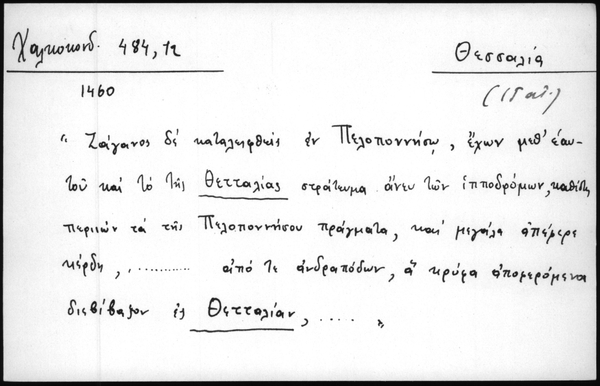 Χαλκοκονδ. 484,12
Θεσσαλία
1460
(15 αἰ.)
"Ζάγανος δέ καταλειφθείς ἐν Πελοποννήσῳ, ἔχων μεθ' ἑαυ-
τοῦ καί τό τῆς Θετταλίας στράτευμα ἄνευ τῶν ἱπποδρόμων, καθίστη
περιιών τά τῆς Πελοποννήσου πράγματα, καί μεγάλα ἀπέφερε
κέρδη, ........... ἀπό τε ἀνδραπόδων, ἅ κρύφα ἀποφερόμενα
διεβίβαζον ἐς Θετταλίαν, ..... "